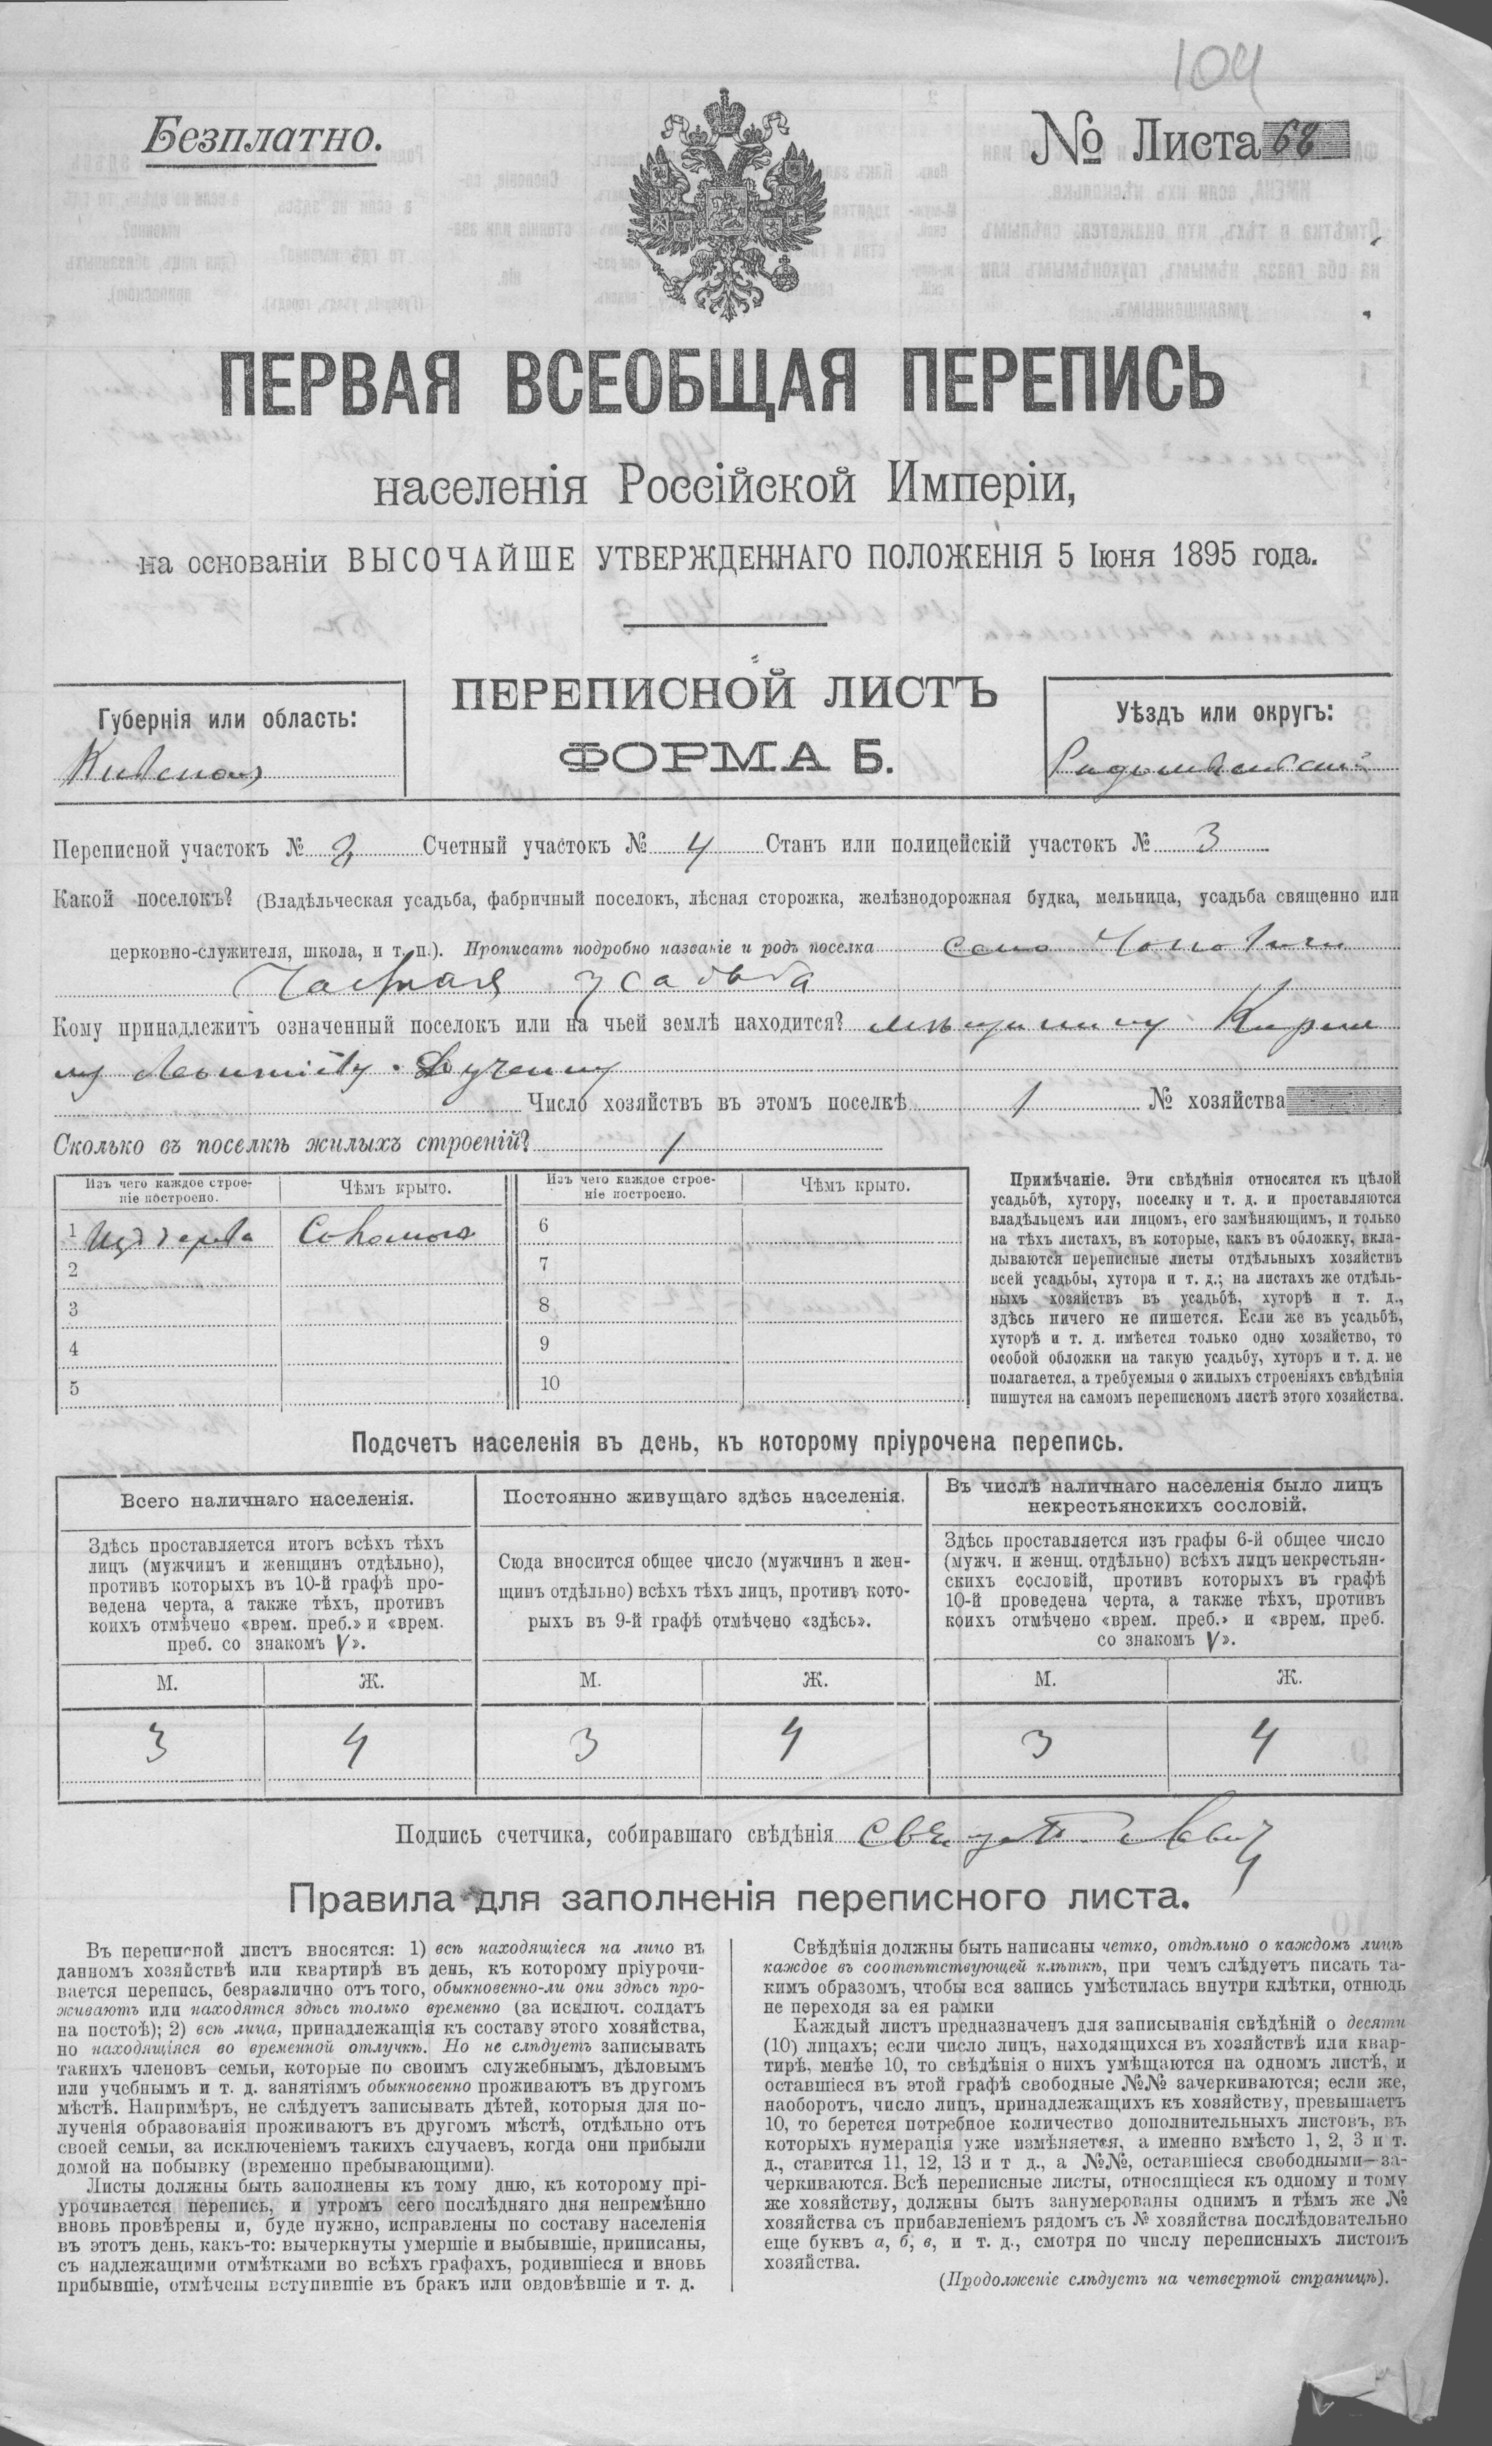 104
Безплатно.
№ Листа 68
ПЕРВАЯ ВСЕОБЩАЯ ПЕРЕПИСЬ
населенія Россійской Имперіи,
на основаніи ВЫСОЧАЙШЕ УТВЕРЖДЕННАГО ПОЛОЖЕНІЯ 5 Іюня 1895 года.
ПЕРЕПИСНОЙ ЛИСТЪ
ФОРМА Б.
Губернія или область:
Кіевская
Уѣздъ или округъ:
Радомысльскій
Переписной участокъ № 2 Счетный участокъ № 4 Станъ или полицейскій участокъ № 3
Какой поселокъ? (Владѣльческая усадьба, фабричный поселокъ, лѣсная сторожка, желѣзнодорожная будка, мельница, усадьба священно или
церковно-служителя, школа, и т. п.). Прописать подробно названіе и родъ поселка село Чоповичи
Частная усадьба
Кому принадлежитъ означенный поселокъ или на чьей землѣ находится? мѣщанину Кирил
лу
Число хозяйствъ въ этомъ поселкѣ 1 № хозяйства
Сколько въ поселкѣ жилыхъ строеній? 1
Изъ чего каждое строе-
ніе построено.
Чѣмъ крыто.
Изъ чего каждое строе-
ніе построено.
Чѣмъ крыто.
1 Изъ дерева Соломою
2
3
4
5
6
7
8
9
10
Примѣчаніе. Эти свѣдѣнія относятся къ цѣлой
усадьбѣ, хутору, поселку и т. д. и проставляются
владѣльцемъ или лицомъ, его замѣняющимъ, и только
на тѣхъ листахъ, въ которые, какъ въ обложку, вкла-
дываются переписные листы отдѣльныхъ хозяйствъ
всей усадьбы, хутора и т. д.; на листахъ же отдѣль-
ныхъ хозяйствъ въ усадьбѣ, хуторѣ и т. д.,
здѣсь ничего не пишется. Если же въ усадьбѣ,
хуторѣ и т. д. имѣется только одно хозяйство, то
особой обложки на такую усадьбу, хуторъ и т. д. не
полагается, а требуемыя о жилыхъ строеніяхъ свѣдѣнія
пишутся на самомъ переписномъ листѣ этого хозяйства.
Подсчетъ населенія въ день, къ которому пріурочена перепись.
Всего наличнаго населенія.
Здѣсь проставляется итогъ всѣхъ тѣхъ
лицъ (мужчинъ и женщинъ отдѣльно),
противъ которыхъ въ 10-й графѣ про-
ведена черта, а также тѣхъ, противъ
коихъ отмѣчено «врем. преб.» и «врем.
преб. со знакомъ V».
Постоянно живущаго здѣсь населенія.
Сюда вносится общее число (мужчинъ и жен-
щинъ отдѣльно) всѣхъ тѣхъ лицъ, противъ кото-
рыхъ въ 9-й графѣ отмѣчено «здѣсь».
Въ числѣ наличнаго населенія было лицъ
некрестьянскихъ сословій.
Здѣсь проставляется изъ графы 6-й общее число
(мужч. и женщ. отдѣльно) всѣхъ лицъ некрестьян-
скихъ сословій, противъ которыхъ въ графѣ
10-й проведена черта, а также тѣхъ, противъ
коихъ отмѣчено «врем. преб.» и «врем. преб.
со знакомъ V».
М. Ж. М. Ж. М. Ж.
3 4 3 4 3 4
Подпись счетчика, собиравшаго свѣдѣнія
Правила для заполненія переписного листа.
Въ переписной листъ вносятся: 1) всѣ находящіеся на лицо въ
данномъ хозяйствѣ или квартирѣ въ день, къ которому пріурочи-
вается перепись, безразлично отъ того, обыкновенно-ли они здѣсь про-
живаютъ или находятся здѣсь только временно (за исключ. солдатъ
на постоѣ); 2) всѣ лица, принадлежащія къ составу этого хозяйства,
но находящіяся во временной отлучкѣ. Но не слѣдуетъ записывать
такихъ членовъ семьи, которые по своимъ служебнымъ, дѣловымъ
или учебнымъ и т. д. занятіямъ обыкновенно проживаютъ въ другомъ
мѣстѣ. Напримѣръ, не слѣдуетъ записывать дѣтей, которыя для по-
лученія образованія проживаютъ въ другомъ мѣстѣ, отдѣльно отъ
своей семьи, за исключеніемъ такихъ случаевъ, когда они прибыли
домой на побывку (временно пребывающими).
Листы должны быть заполнены къ тому дню, къ которому прі-
урочивается перепись, и утромъ сего послѣдняго дня непремѣнно
вновь провѣрены и, буде нужно, исправлены по составу населенія
въ этотъ день, какъ-то: вычеркнуты умершіе и выбывшіе, приписаны,
съ надлежащими отмѣтками во всѣхъ графахъ, родившіеся и вновь
прибывшіе, отмѣчены вступившіе въ бракъ или овдовѣвшіе и т. д.
Свѣдѣнія должны быть написаны четко, отдѣльно о каждомъ лицѣ
каждое въ соотвѣтствующей клѣткѣ, при чемъ слѣдуетъ писать та-
кимъ образомъ, чтобы вся запись умѣстилась внутри клѣтки, отнюдь
не переходя за ея рамки
Каждый листъ предназначенъ для записыванія свѣдѣній о десяти
(10) лицахъ; если число лицъ, находящихся въ хозяйствѣ или квар-
тирѣ, менѣе 10, то свѣдѣнія о нихъ умѣщаются на одномъ листѣ, и
оставшіеся въ этой графѣ свободные №№ зачеркиваются; если же,
наоборотъ, число лицъ, принадлежащихъ къ хозяйству, превышаетъ
10, то берется потребное количество дополнительныхъ листовъ, въ
которыхъ нумерація уже измѣняется, а именно вмѣсто 1, 2, 3 и т.
д., ставится 11, 12, 13 и т д., а №№, оставшіеся свободными—за-
черкиваются. Всѣ переписные листы, относящіеся къ одному и тому
же хозяйству, должны быть занумерованы однимъ и тѣмъ же №
хозяйства съ прибавленіемъ рядомъ съ № хозяйства послѣдовательно
еще буквъ а, б, в, и т. д., смотря по числу переписныхъ листовъ
хозяйства.
(Продолженіе слѣдуетъ на четвертой страницѣ).